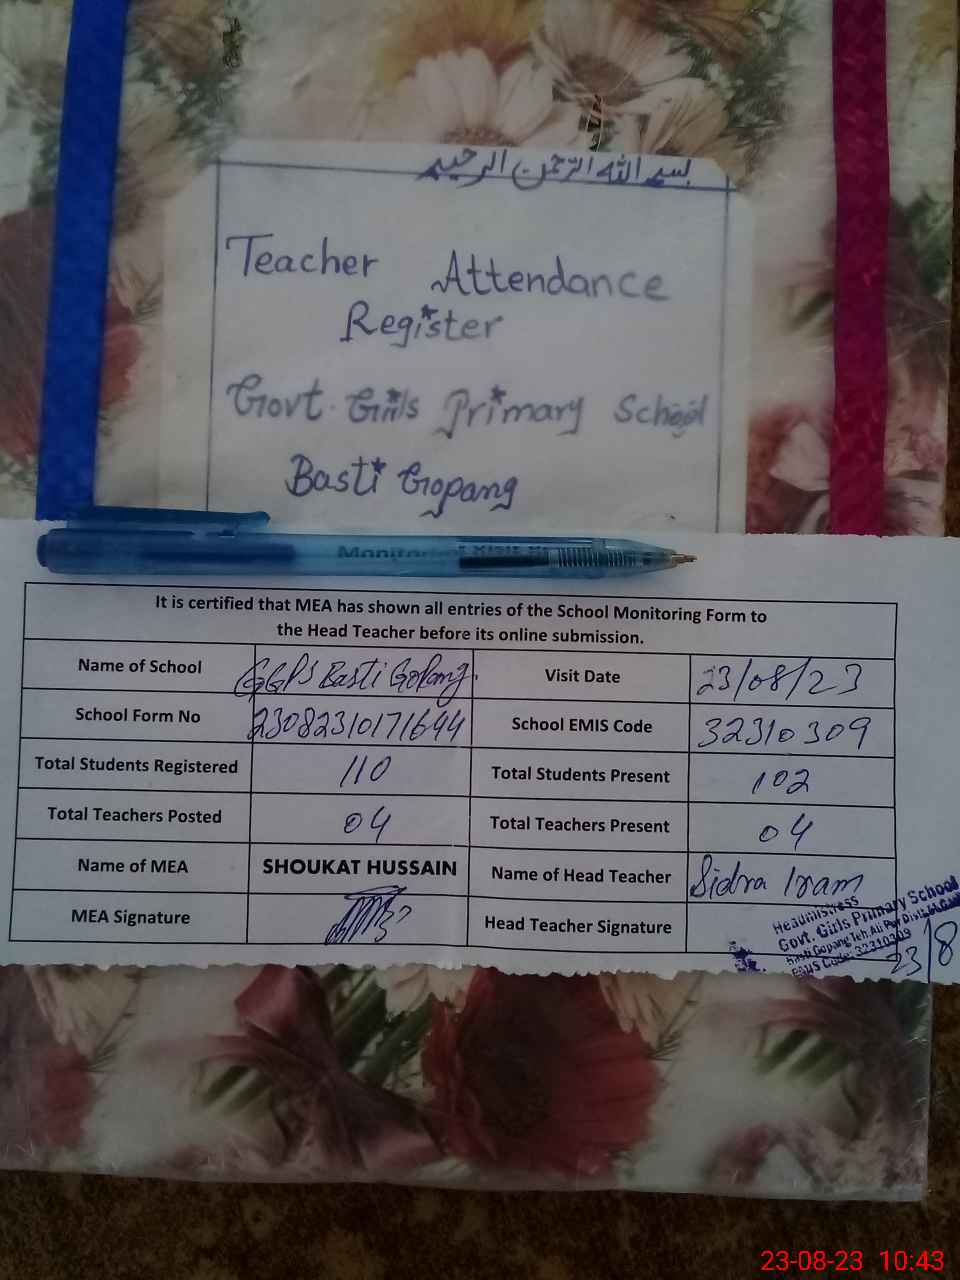 بسم الله الرحمن الرحيم
Teacher Attendance
Register
Govt. Girls Primary School
Basti Gopang
Monitoring
It is certified that MEA has shown all entries of the School Monitoring Form to
the Head Teacher before its online submission.
Name of School GGPS Basti Gopang. Visit Date 23/08/23
School Form No 23082310171644 School EMIS Code 32310309
Total Students Registered 110 Total Students Present 102
Total Teachers Posted 04 Total Teachers Present 04
Name of MEA SHOUKAT HUSSAIN Name of Head Teacher Sidra Iram
MEA Signature Head Teacher Signature
Headmistress
Govt. Girls Primary School
Basti Gopang Teh. Ali Pur
Code: 32310309
23/8
23-08-23 10:43